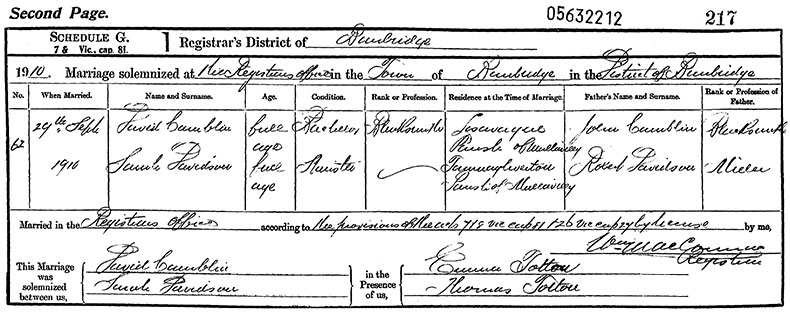 Second Page. 05632212 217
SCHEDULE G.
7 & Vic., cap. 81.
Registrar's District of Banbridge
1910. Marriage solemnized at the Registrars office in the Town of Banbridge in the District of Banbridge
No. When Married. Name and Surname. Age. Condition. Rank or Profession. Residence at the Time of Marriage. Father's Name and Surname. Rank or Profession of Father.
62 29th Sept David Camblin full age Bachelor Blacksmith Parish of John Camblin Blacksmith
1910 Sarah Davidson full age Spinster Parish of Robert Davidson
Married in the Registrars office according to the provisions of the acts by license by me,
Wm MacConnell
Registrar
This Marriage was solemnized between us,
David Camblin
Sarah Davidson
in the Presence of us,
Emma Totton
Thomas Totton